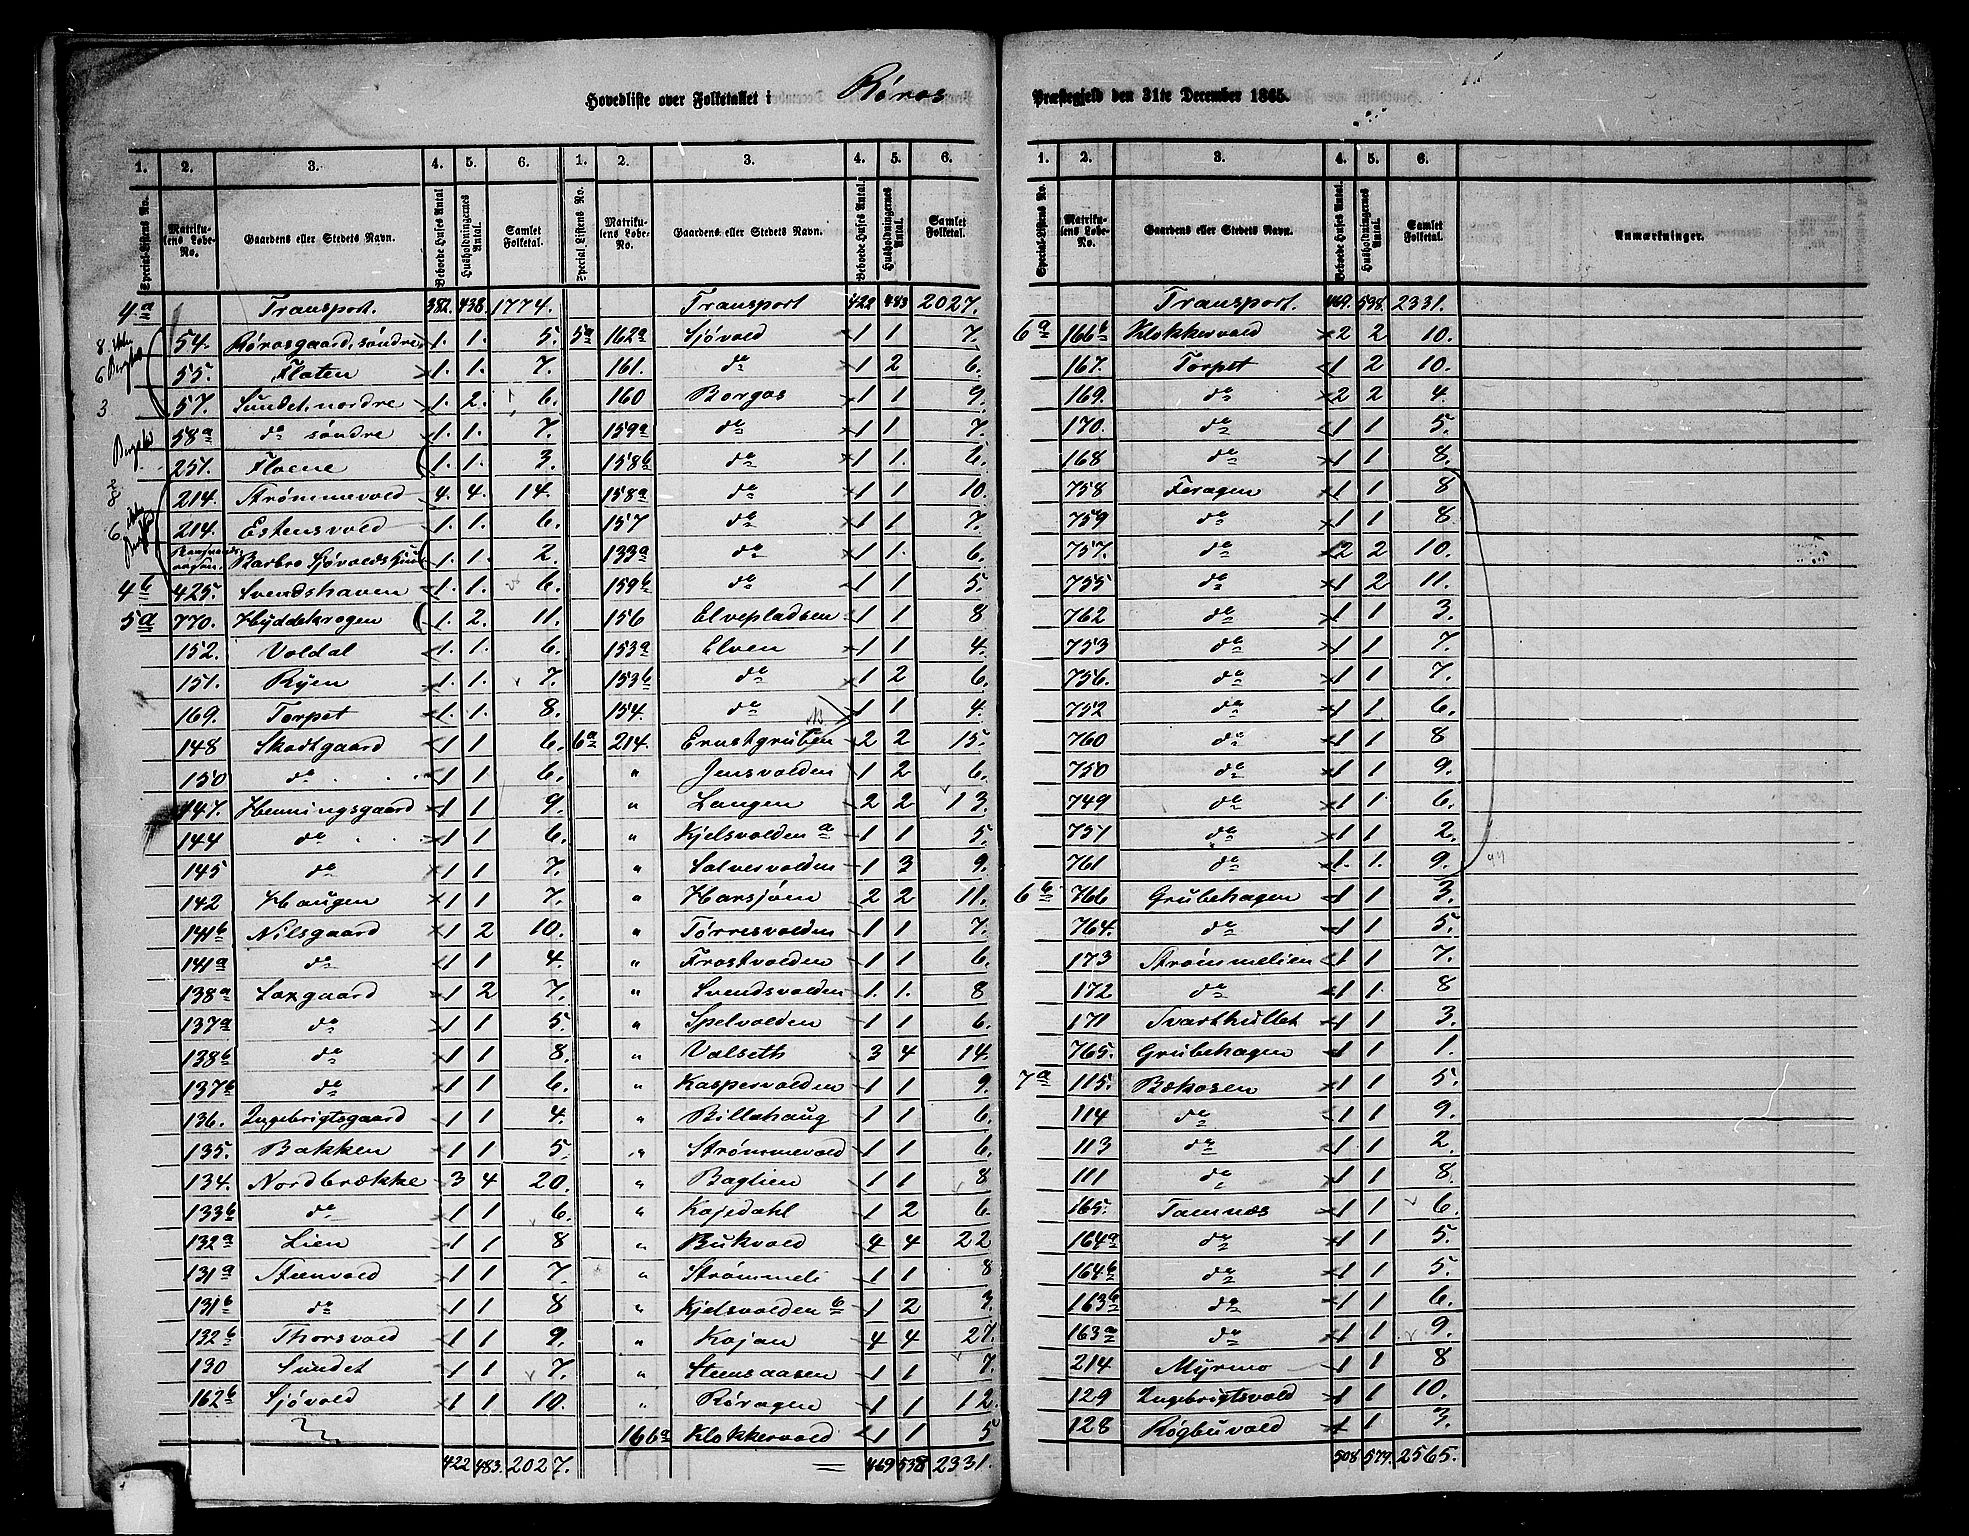 Hovedliste over Folketallet i Røros Præstegjeld den 31te December 1865.
1. 2. 3. 4. 5. 6. 1. 2. 3. 4. 5. 6.
Special-Listens No. Matrikulens Løbe-No. Gaardens eller Stedets Navn. Beboede Huses Antal Husholdningernes Antal. Samlet Folketal. Special Listens No. Matrikulens Løbe-No. Gaardens eller Stedets Navn. Beboede Huses Antal. Husholdningernes Antal. Samlet Folketal.
4a Transport. 382. 438. 1774. Transport 422 483 2027.
8. 54. Rørosgaard, søndre 1. 1. 5. 5a 162a Sjøvold 1 1 7.
6 55. Floten 1. 1. 7. 161. do 1 2 6.
3 57. Sundet, nordre 1. 2. 6. 160 Borgos 1 1 9.
58a do søndre 1. 1. 7. 159a do 1 1 7.
251. Floene 1. 1. 3. 158b do 1 1. 6.
214. Strømmevold 4. 4. 14. 158a do 1 1 10.
6 214. Estensvold 1. 1. 6. 157 do 1 1 7.
Barbro Sjøvoldshuus 1. 1. 2. 133a do 1 1. 6.
4b 425. Svendshaven 1. 1. 6. 159b do 1 1 5.
5a 770. Hyddekrogen 1. 2. 11. 156 Elvepladsen 1 1 8
152. Voldal 1. 1. 6. 153a Elven 1 1 4.
151. Ryen 1. 1. 7. 153b do 1 2 6.
169. Torpet 1. 1. 8. 154. do 1 1 4.
148 Skottgaard 1 1 6. 6a 214. Ernstgruben 2 2 15.
150 do 1 1 6. " Jensvolden 1 2 6.
147. Henningsgaard 1 1 9. " Langen 2 2 13.
144 do 1 1 6. " Kjelsvolden a 1 1 5.
145 do 1 1 7. " Salvesvolden 1 3 9.
142 Haugen 1 1 7. " Harsjøen 2 2 11.
141b Nilsgaard 1 2 10. " Tørresvolden 1 1 7.
141a do 1 1 4. " Frostvolden 1 1 6.
138a Largaard 1 2 7. " Svendsvolden 1. 1. 8
137a do 1 1 5. " Spelvolden 1 1 6.
138b do 1 1 8. " Valseth 3 4 14.
137b do 1 1 6. " Kaspervolden 1 1 9.
136. Ingebrigtsgaard 1 1 4. " Billehaug 1 1 6.
135. Bakken 1 1 5. " Strømmevold 1 1 6.
134. Nordbrække 3 4 20. " Baglien 1 1 8
133b do 1 1 6. " Kojedahl 1 2 6.
132a Lien 1 1 8 " Bukvold 4 4 22
131a Steenvold 1 1 7. " Strømmeli 1 1 8
131b do 1 1 8 " Kjelsvolden b 1 2 3.
132b Thorsvold 1 1 9. " Kojan 4 4 27.
130 Sundet 1 1 7. " Steensaasen 1 1 7.
162b Sjøvold 1 1 10. " Røragen 1 1 12.
166a Klokkervold 1 1 5
422 483. 2027. 469 538 2331.
1. 2. 3. 4. 5. 6.
Special-Listens No. Matrikulens Løbe-No. Gaardens eller Stedets Navn. Beboede Huses Antal. Husholdningernes Antal. Samlet Folketal. Anmærkninger.
Transport. 469. 538. 2331.
6a 166b Klokkervold 2 2 10.
167. Torpet 1 2 10.
169. do 2 2 4.
170. do 1 1 5.
168 do 1 1 8.
758 Feragen 1 1 8
759 do 1 1 8.
757. do 2 2 10.
755 do 1 2 11.
762 do 1 1 3.
753 do 1 1 7.
756. do 1 1 7.
752 do 1 1 6.
760 do 1 1 8
750 do 1 1 9.
749 do 1 1 6.
751 do 1 1 2.
761 do 1. 1. 9.
6b 766 Grubehagen 1 1 3.
764. do 1 1 5.
173 Strømmelien 1 1 7.
172 do 1 1 8
171 Svarthullet 1 1 3.
765. Grubehagen 1 1 1.
7a 115. Bækosen 1 1 5.
114 do 1 1 9.
113 do 1 1 2
111 do 1 1 8.
165. Tamnæs 1 1 6.
164a do 1 1 5.
164b do 1 1 5.
163b do 1 1 6.
163a do 1 1 9.
214 Myrmo 1 1 8
129 Ingebrigtsvold 1 1 10.
128 Røgbuvold 1 1 3.
508 579. 2565.